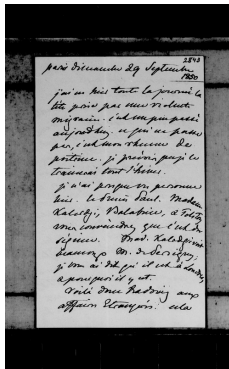 2840
paris dimanche 29 Septembre
1850
j'ai eu hier toute la journée la
tête prise par une violente
migraine. c'est un peu passé
aujourd'hui. ce qui ne passe
pas, c'est mon rhume de
poitrine. je prévois que je le
trainerai tout l'hiver.
je n'ai presque vu personne
hier. le Prince Paul. Madame
Kalergi,
vous conviendrez que c'est du
Mad. Kalergi
beaucoup M. de
je vous ai dit qu'il est à Londres,
& pourquoi il y est.
Voilà donc Radowitz aux
affaires Etrangères. cela